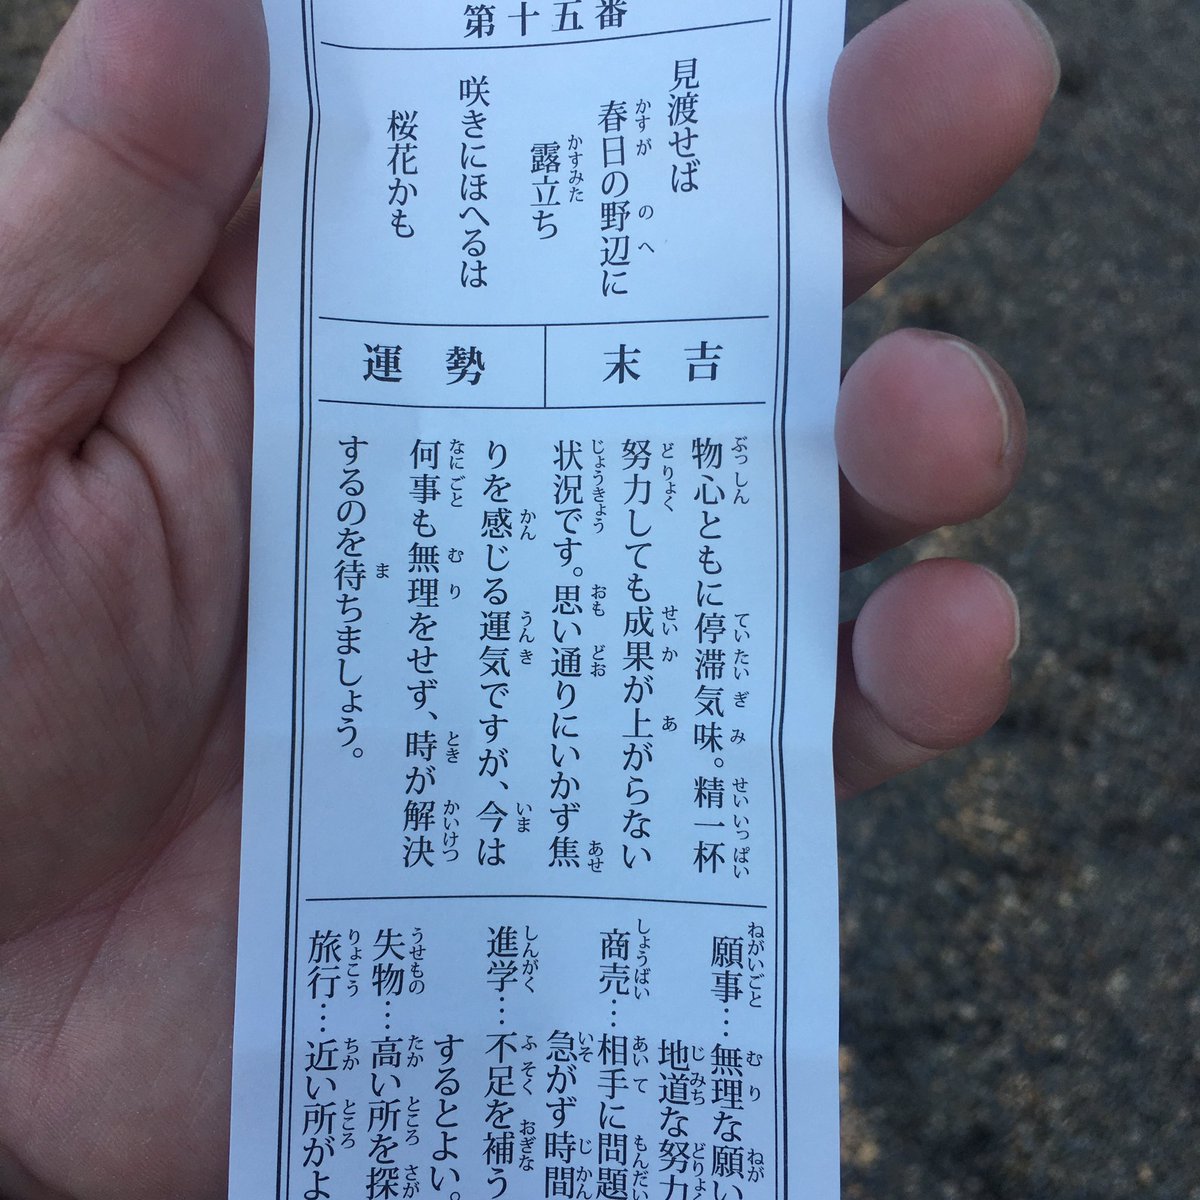 第十五番
見渡せば
春日の野辺に
露立ち
咲きにほへるは
桜花かも
末吉
運勢
物心ともに停滞気味。精一杯
努力しても成果が上がらない
状況です。思い通りにいかず焦
りを感じる運気ですが、今は
何事も無理をせず、時が解決
するのを待ちましょう。
願事…無理な願い
地道な努力
商売…相手に問題
急がず時間
進学…不足を補う
するとよい。
失物…高い所を探
旅行…近い所がよ